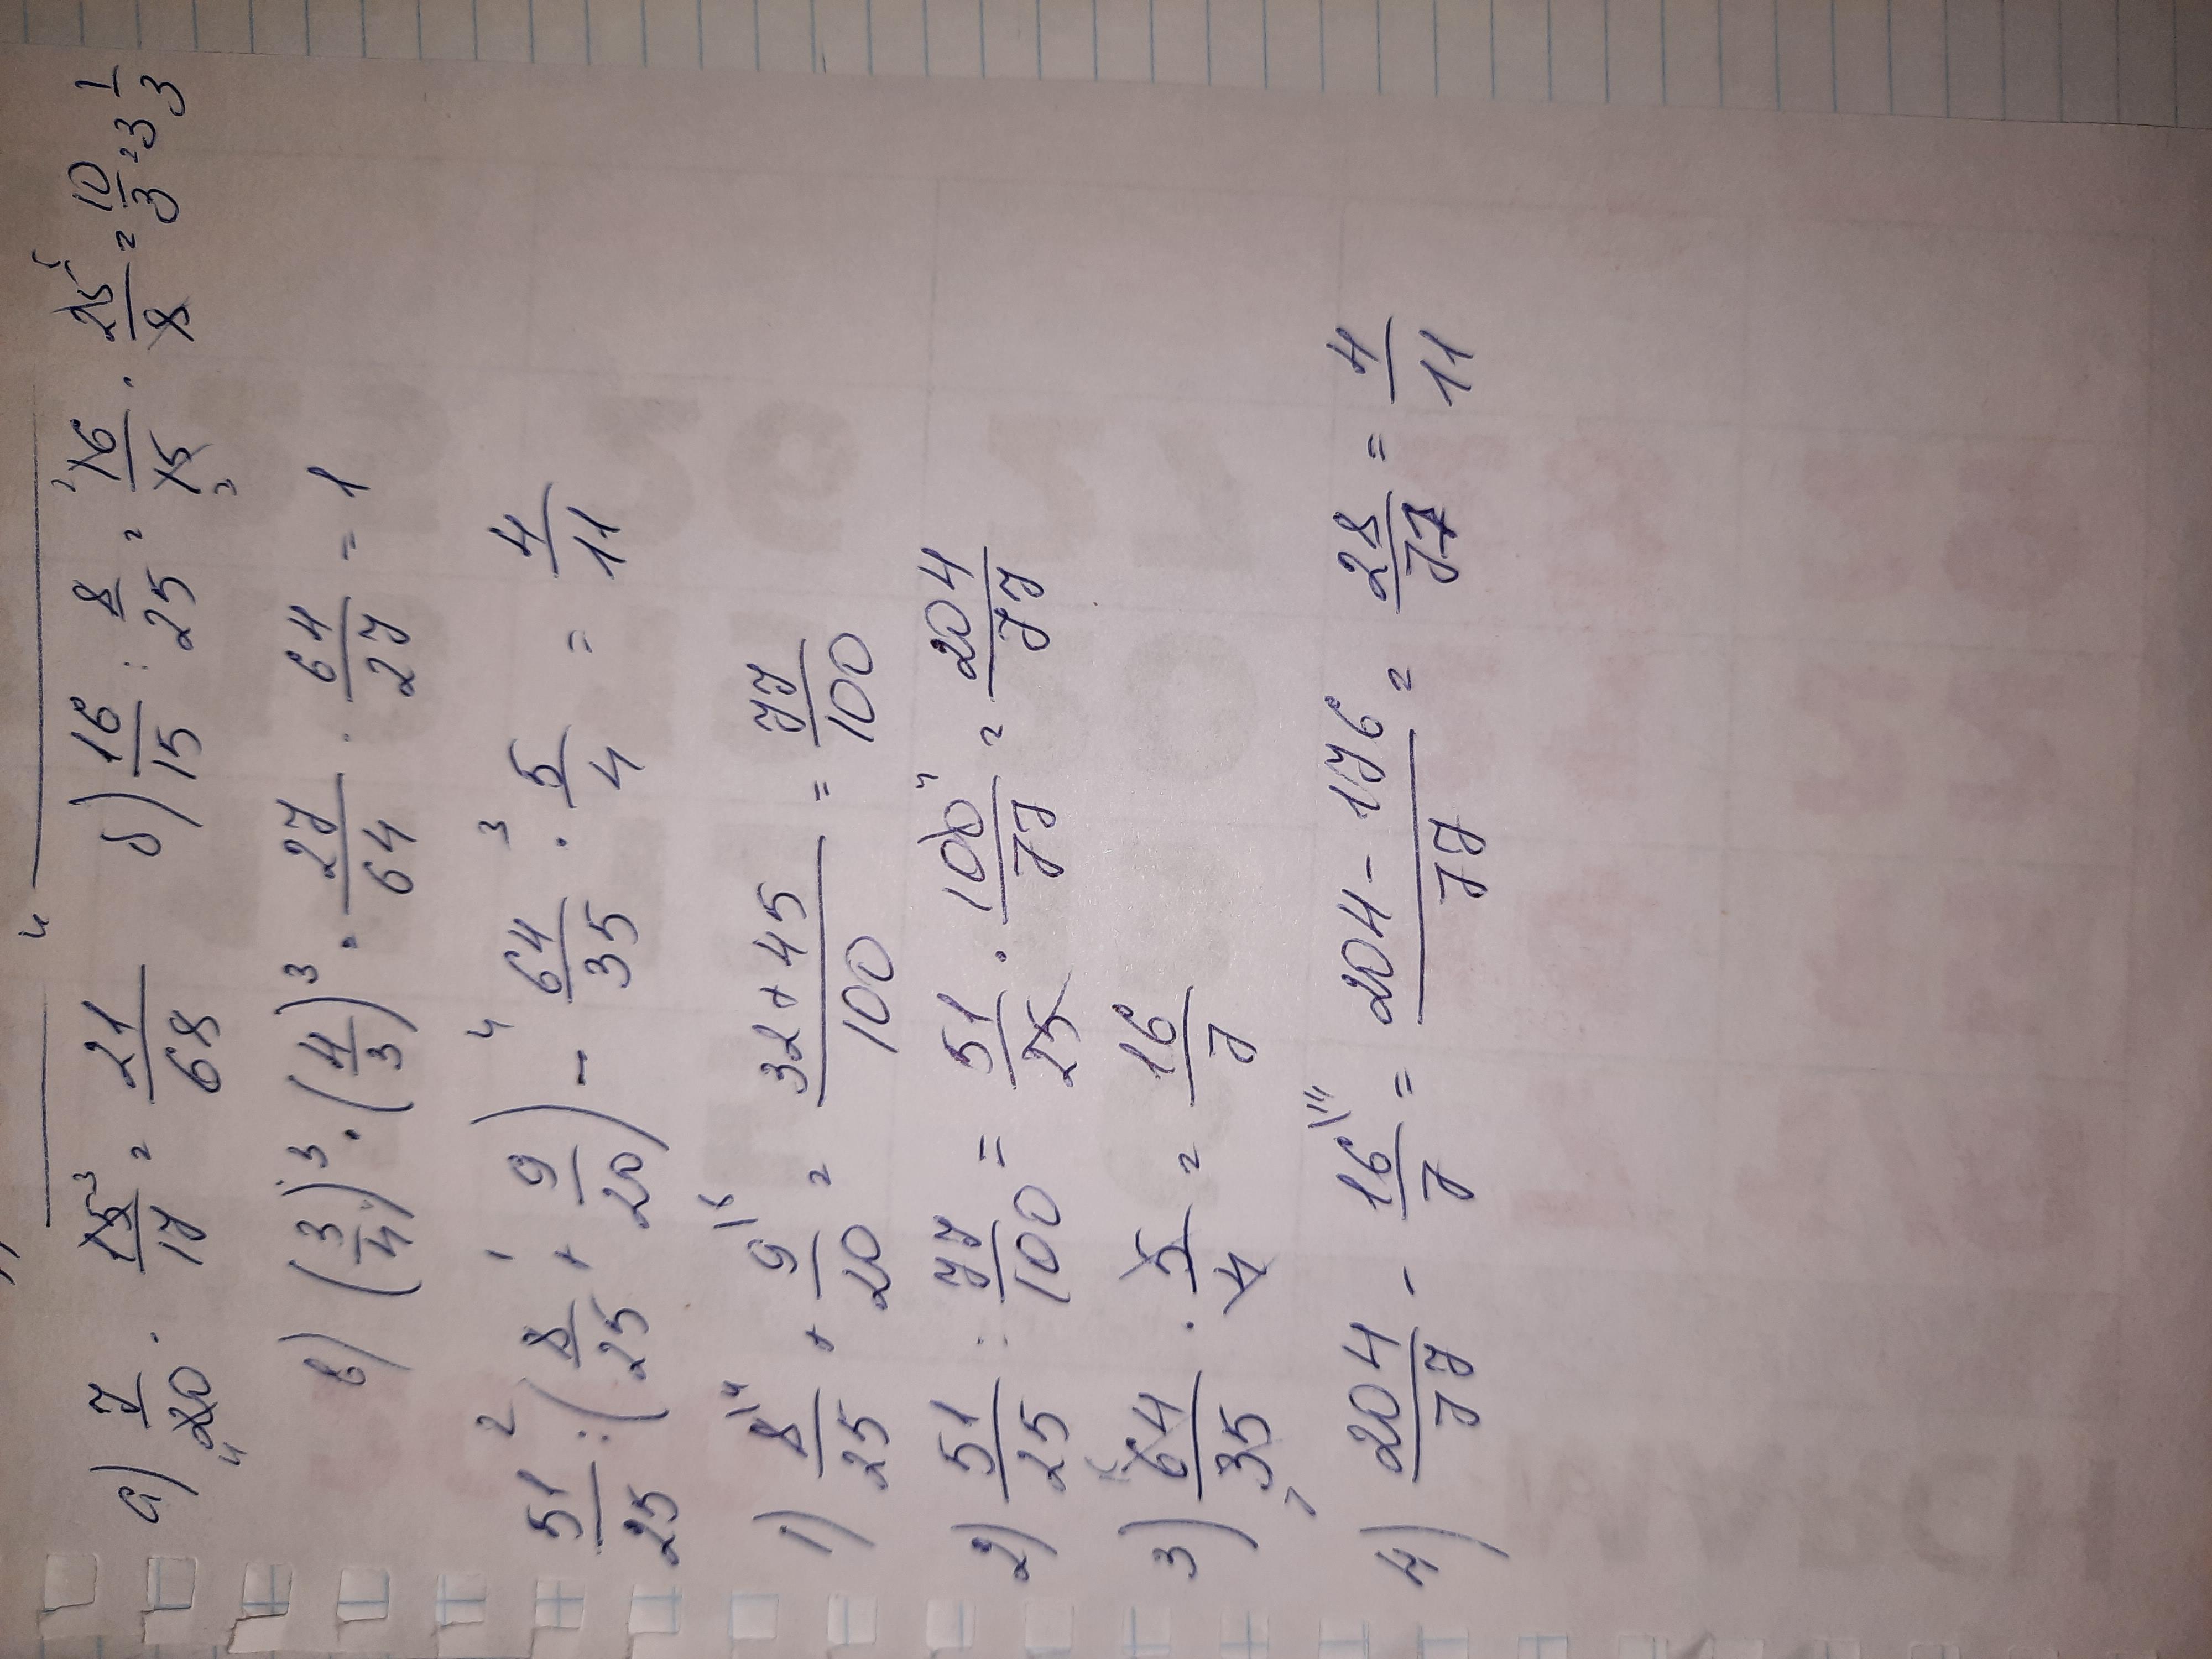 а) 7/20 · 15³/17 = 21/68 б) 16/15 : 8/25 = 16/15 · 25/8 = 10/3 = 3 1/3
в) (3/4)³ · (4/3)³ = 27/64 · 64/27 = 1
51/25 : (8/25 + 9/20) - 64/35 · 5/4 = 4/11
1) 8/25 + 9/20 = 32+45/100 = 77/100
2) 51/25 : 77/100 = 51/25 · 100/77 = 204/77
3) 64/35 · 5/4 = 16/7
4) 204/77 - 16/7 = 204-176/77 = 28/77 = 4/11